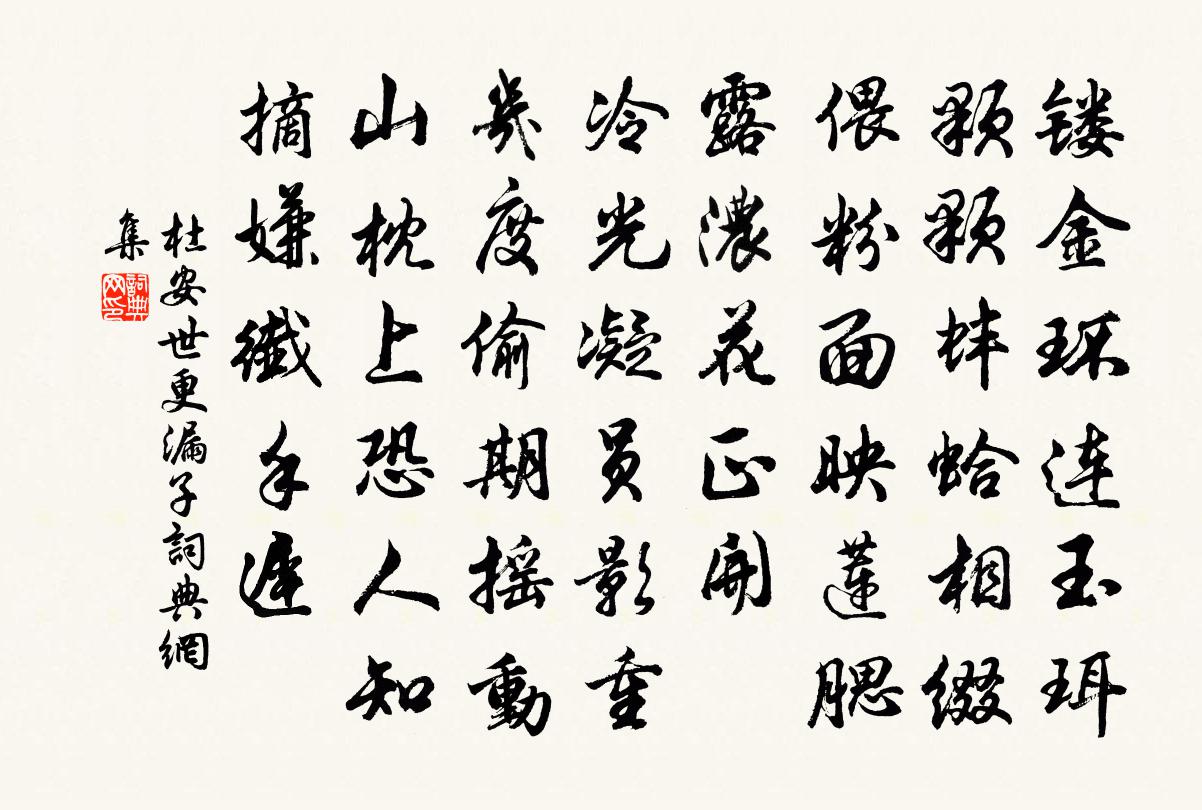 镂金环连玉珥
颗颗蚌蛤相缀
偎粉面映莲腮
露濃花正開
冷光凝员影重
幾度偷期摇動
山枕上恐人知
摘嫌纖手遲
杜安世更漏子詞典網
集
詞典
网印